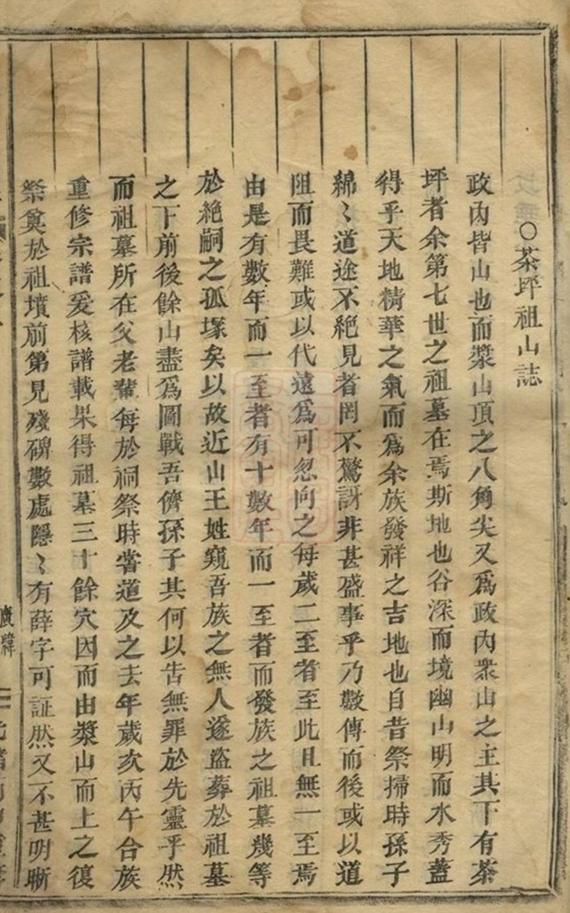 ○茶坪祖山誌
政內皆山也而漿山頂之八角尖又爲政內衆山之主其下有茶
坪者余第七世之祖墓在焉斯地也谷深而境幽山明而水秀蓋
得乎天地精華之氣而爲余族發祥之吉地也自昔祭掃時孫子
綿〻道途不絕見者罔不驚訝非甚盛事乎乃數傳而後或以道
阻而畏難或以代遠爲可忽向之每歲二至者至此且無一至焉
由是有數年而一至者有十數年而一至者而發族之祖墓幾等
於絕嗣之孤塚矣以故近山王姓窺吾族之無人遂盜葬於祖墓
之下前後餘山盡爲圖戰吾儕孫子其何以告無罪於先靈乎然
而祖墓所在父老輩每於祠祭時嘗道及之去年歲次丙午合族
重修宗譜爰核譜載果得祖墓三十餘穴因而由漿山而上之復
祭奠於祖墳前第見殘碑數處隱〻有薛字可証然又不甚明晰